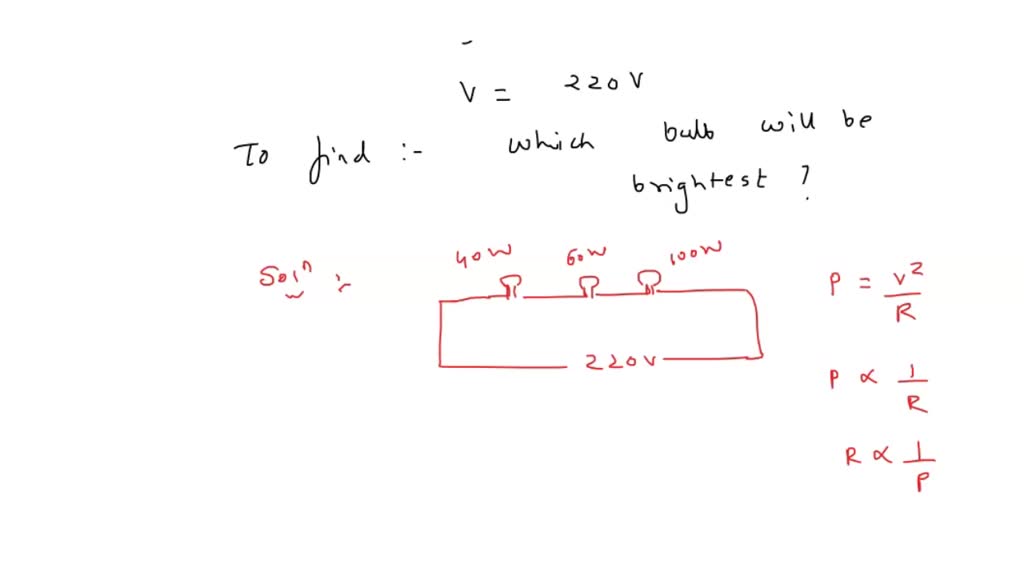 V = 220V
To find :- which bulb will be
brightest ?
Solⁿ :-
40W 60W 100W
220V
P = V²/R
P ∝ 1/R
R ∝ 1/P